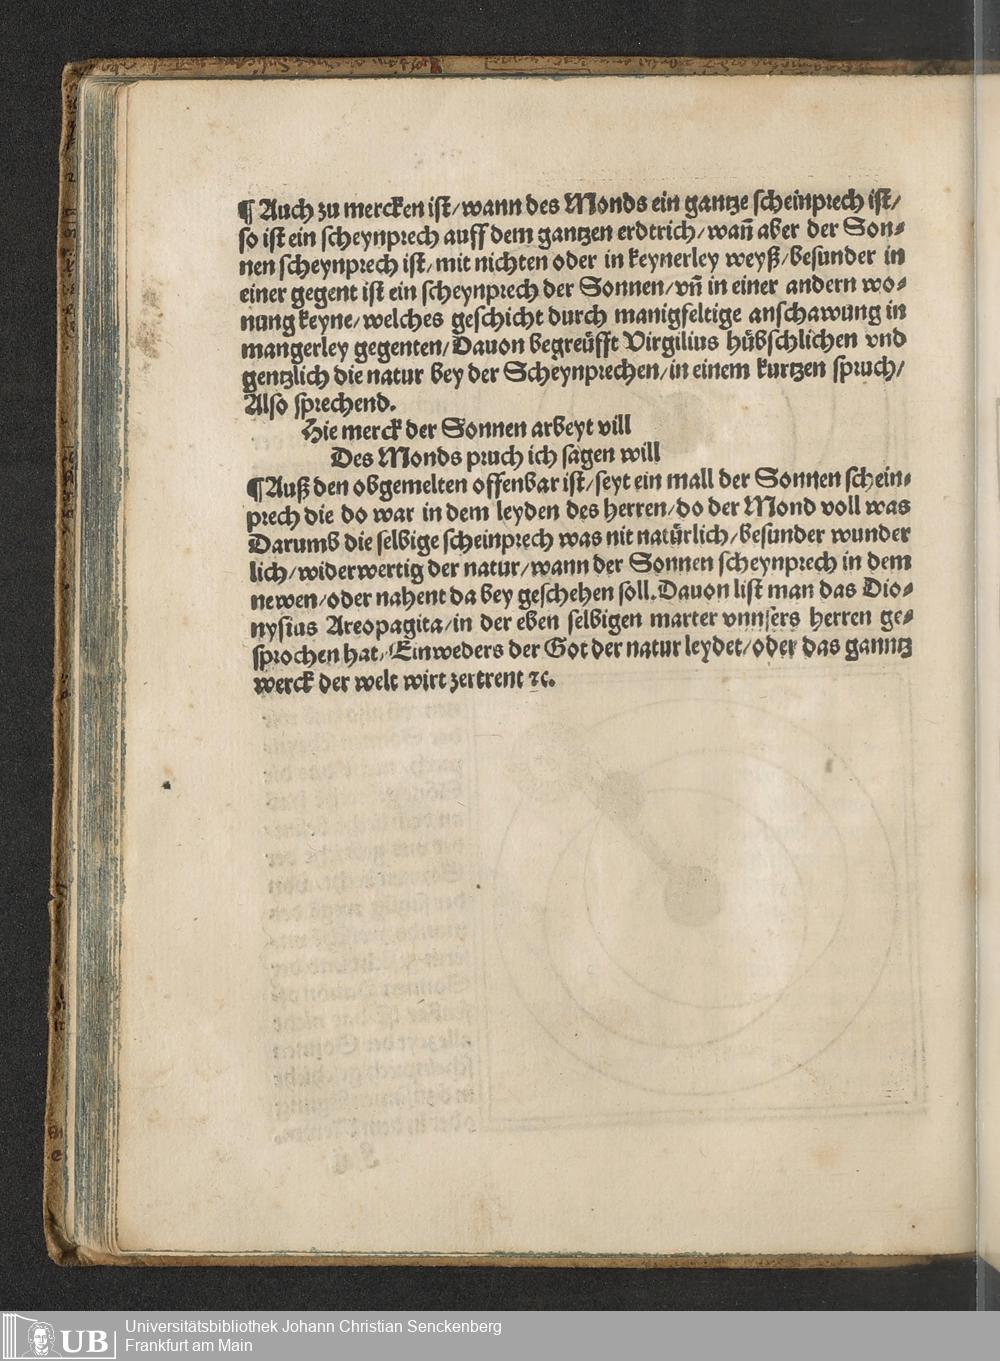 ¶ Auch zu mercken ist/wann des Monds ein gantze scheinprech ist/
so ist ein scheynprech auff dem gantzen erdtrich/wañ aber der Son⸗
nen scheynprech ist/mit nichten oder in keynerley weyß/besunder in
einer gegent ist ein scheynprech der Sonnen/vñ in einer andern wo⸗
nung keyne/welches geschicht durch manigfeltige anschawung in
mangerley gegenten/Dauon begreüfft Virgilius hübschlichen vnd
gentzlich die natur bey der Scheynprechen/in einem kurtzen spruch/
Also sprechend.
Hie merck der Sonnen arbeyt vill
Des Monds pruch ich sagen will
¶ Auß den obgemelten offenbar ist/seyt ein mall der Sonnen schein⸗
prech die do war in dem leyden des herren/do der Mond voll was
Darumb die selbige scheinprech was nit natürlich/besunder wunder
lich/widerwertig der natur/wann der Sonnen scheynprech in dem
newen/oder nahent da bey geschehen soll. Dauon list man das Dio⸗
nysius Areopagita/in der eben selbigen marter vnnsers herren ge⸗
sprochen hat/Einweders der Got der natur leydet/oder das ganntz
werck der welt wirt zertrent ⁊c.
UB
Universitätsbibliothek Johann Christian Senckenberg
Frankfurt am Main